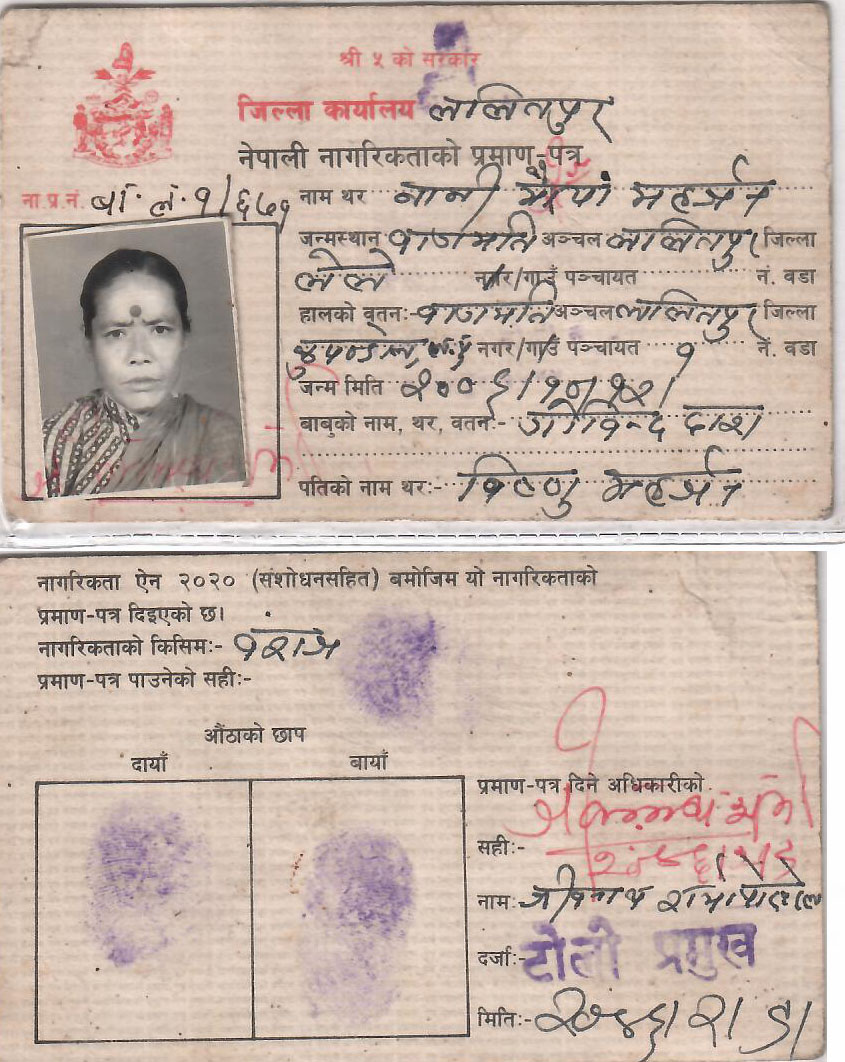 श्री ५ को सरकार
जिल्ला कार्यालय ललितपुर
नेपाली नागरिकताको प्रमाण-पत्र
ना.प्र.नं. बा. ल. १/६७५ नाम थर नानी मैयां महर्जन
जन्मस्थान वागमति अञ्चल ललितपुर जिल्ला
लेले नगर/गाउँ पञ्चायत नं. वडा
हालको वतन:- वागमति अञ्चल ललितपुर जिल्ला
नगर/गाउँ पञ्चायत १ नं. वडा
जन्म मिति २००६।१०।१२।
बाबुको नाम, थर, वतन:- गोविन्द दास
पतिको नाम थर:- विष्णु महर्जन
नागरिकता ऐन २०२० (संशोधनसहित) बमोजिम यो नागरिकताको
प्रमाण-पत्र दिइएको छ।
नागरिकताको किसिम:- वंशज
प्रमाण-पत्र पाउनेको सही:-
औंठाको छाप
दायाँ बायाँ
प्रमाण-पत्र दिने अधिकारीको
सही:-
नाम:- शर्मा
दर्जा:- टोली प्रमुख
मिति:-